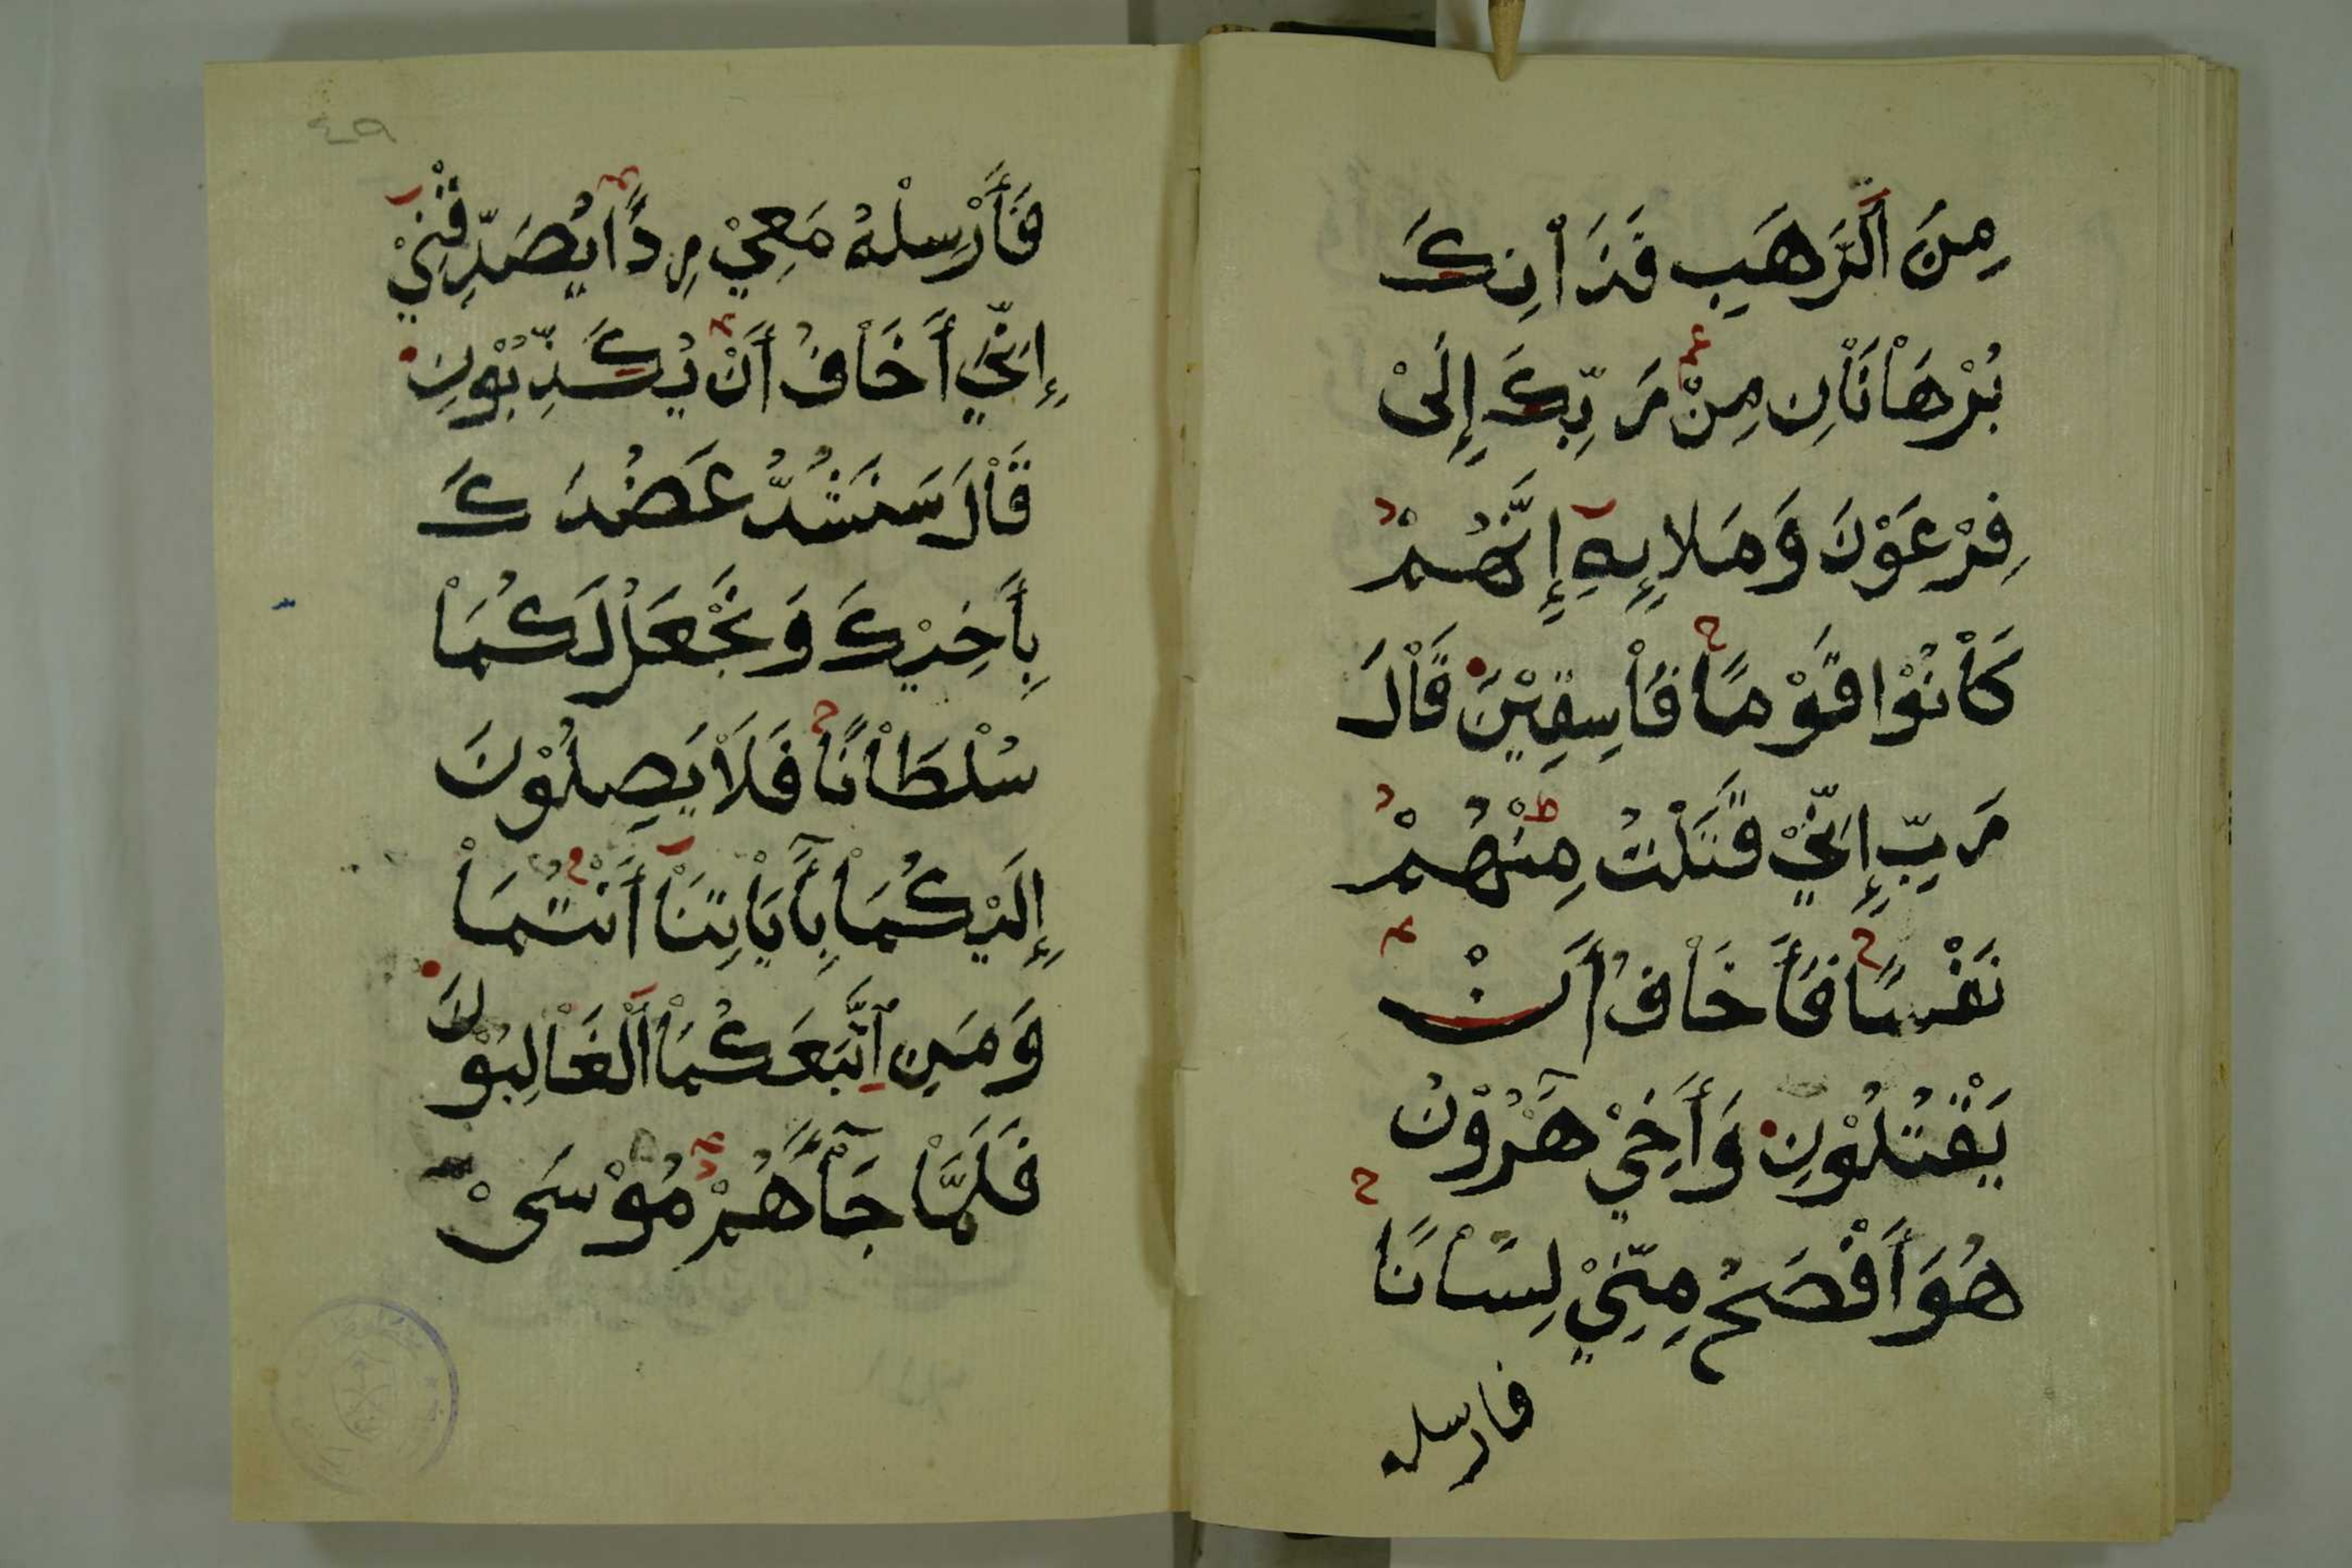 مِنَ ٱلرَّهَبِ فَذَانِكَ
بُرْهَاْنَاْنِ مِنْ رَبِّكَ إِلَىْ
فِرْعَوْنَ وَمَلَإِيهِ إِنَّهُمْ
كَاْنُوْا قَوْمًا فَاْسِقِيْنَ قَاْلَ
رَبِّ إِنِّيْ قَتَلْتُ مِنْهُمْ
نَفْسًا فَأَخَاْفُ أَنْ
يَقْتُلُوْنِ وَأَخِيْ هَٰرُوْنُ
هُوَ أَفْصَحُ مِنِّيْ لِسَاْنًا
فارسله
٤٩
فَأَرْسِلْهُ مَعِيْ رِدًا يُصَدِّقْنِيْ
إِنِّيْ أَخَاْفُ أَنْ يُكَذِّبُوْنِ
قَاْلَ سَنَشُدُّ عَضُدَكَ
بِأَخِيْكَ وَنَجْعَلُ لَكُمَاْ
سُلْطَاْنًا فَلَاْ يَصِلُوْنَ
إِلَيْكُمَاْ بِأٓيَاْتِنَاْ أَنْتُمَاْ
وَمَنِ ٱتَّبَعَكُمَاْ ٱلْغَاْلِبُوْنَ
فَلَمَّاْ جَآءَهُمْ مُوْسَىْ